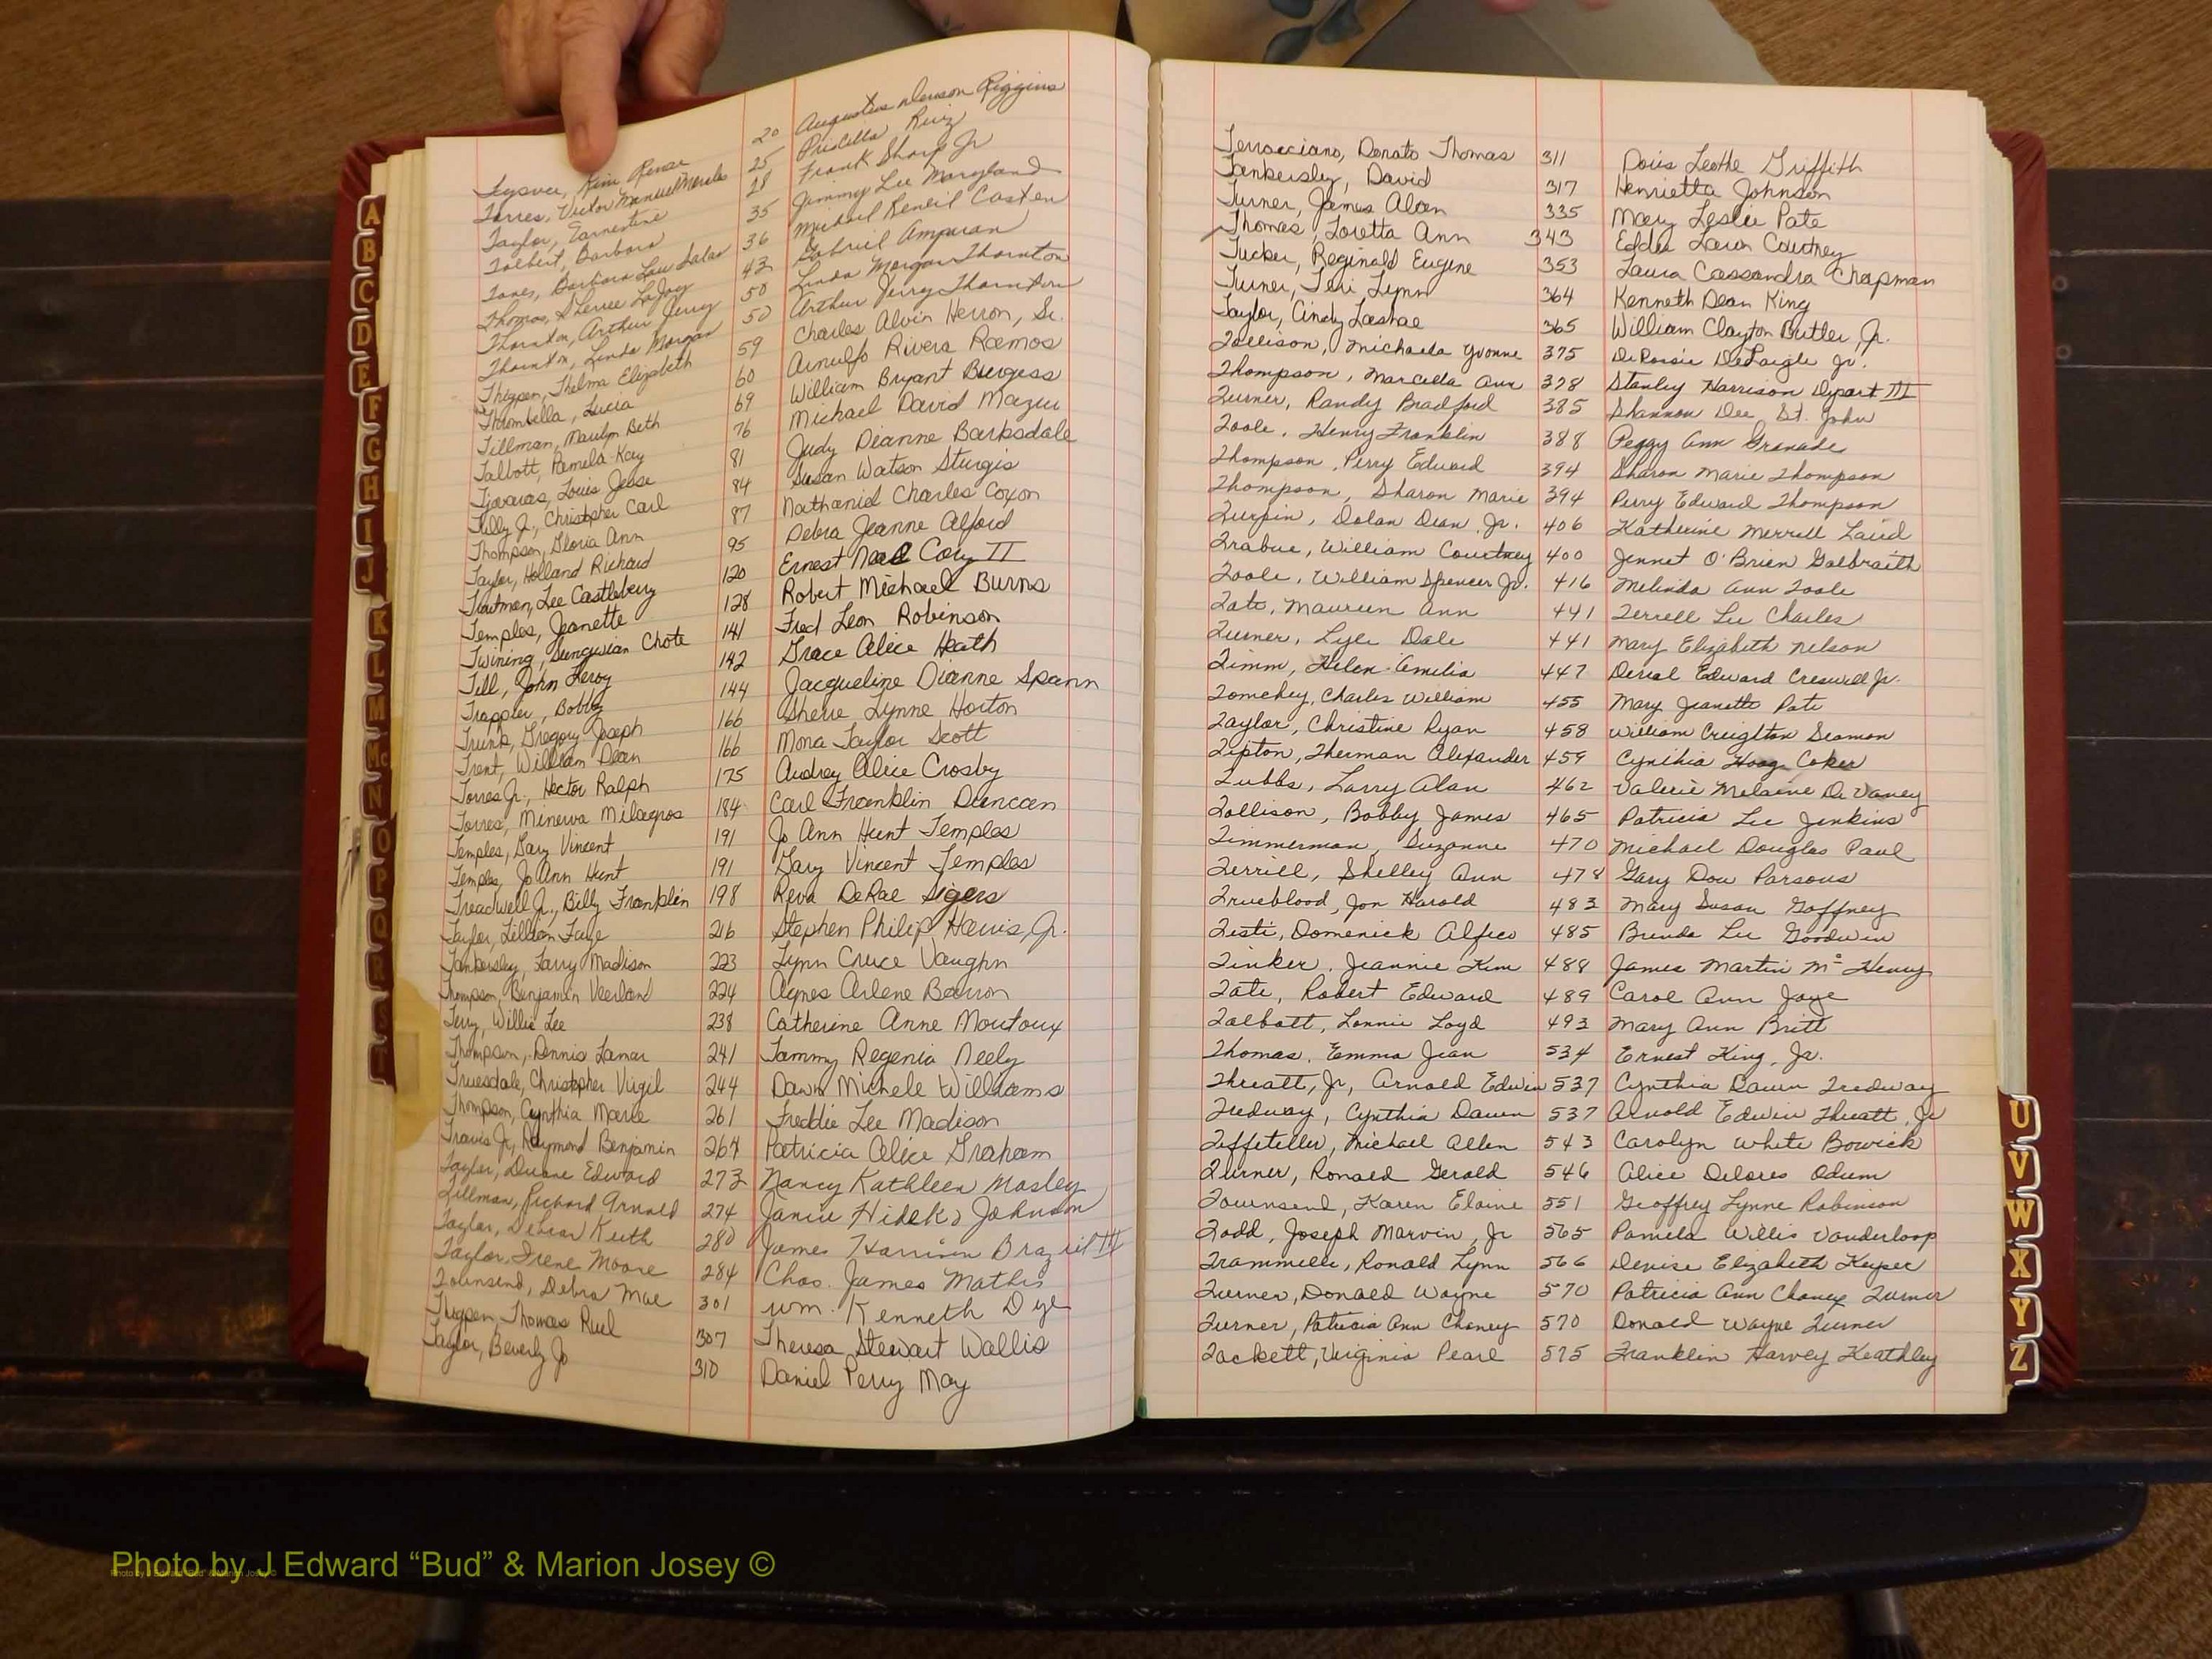 20 Augustus Denson Riggins
Kim Renee 25 Priscilla Ruiz
Torres, Victor Manuel 28 Frank Sharp Jr
Taylor, Earnestine 35 Jimmy Lee Maryland
Tolbert, Barbara 36 Michael Casten
Barbara Lou Salas 43 Gabriel
Thomas, Sherree LaJoy 50 Linda Morgan Thornton
Thornton, Arthur Jerry 50 Arthur Jerry Thornton
Thornton, Linda Morgan Charles Alvin Herron, Sr.
Thigpen, Thelma Elizabeth 59 Arnulfo Rivera Ramos
Lucia 60 William Bryant Burgess
Tillman, Marilyn Beth 69 Michael David Mazur
Talbott, Pamela Kay 76 Judy Dianne Barksdale
Louis Jesse 81 Susan Watson Sturgis
Tilly Jr., Christopher Carl 84 Nathaniel Charles Coxon
Thompson, Gloria Ann 87 Debra Jeanne Alford
Taylor, Holland Richard 95 Ernest Cory II
Troutman, Lee Castleberry 120 Robert Michael Burns
Temples, Jeanette 128 Fred Leon Robinson
Twining, Chote 141 Grace Alice Heath
Till, John Leroy 142 Jacqueline Dianne Spann
Trappler, Bobby 144 Sherie Lynne Horton
Gregory Joseph 166 Mona Taylor Scott
Trent, William Dean 166 Audrey Alice Crosby
Torres Jr., Hector Ralph 175 Carl Franklin Duncan
Torres, Minerva Milagros 184 Jo Ann Hunt Temples
Temples, Gary Vincent 191 Gary Vincent Temples
Temples, Jo Ann Hunt 191 Reva DeRae Sigers
Treadwell Jr., Billy Franklin 198 Stephen Philip Harris, Jr.
Taylor, Lillian Faye 216 Lynn Cruce Vaughn
Tankersley, Larry Madison 223 Agnes Arlene Barron
Thompson, Benjamin 224 Catherine Anne Moutoux
Terry, Willie Lee 238 Tammy Regenia Neely
Thompson, Dennis Lamar 241 Dawn Michele Williams
Truesdale, Christopher Virgil 244 Freddie Lee Madison
Thompson, Cynthia Marie 261 Patricia Alice Graham
Travis Jr, Raymond Benjamin 267 Nancy Kathleen Mosley
Taylor, Duane Edward 273 Janice Hideko Johnson
Tillman, Richard Arnold 274 James Harrison III
Taylor, Keith 280 Chas. James Mathis
Taylor, Irene Moore 284 Wm. Kenneth Dye
Townsend, Debra Mae 301 Theresa Stewart Wallis
Thigpen, Thomas Ruel 307 Daniel Perry May
Taylor, Beverly Jo 310
Terracciano, Donato Thomas 311 Doris Griffith
Tankersley, David 317 Henrietta Johnson
Turner, James Alan 335 Mary Leslie Pate
Thomas, Loretta Ann 343 Eddie Courtney
Tucker, Reginald Eugene 353 Laura Cassandra Chapman
Turner, Teri Lynn 364 Kenneth Dean King
Taylor, Cindy 365 William Clayton Butler, Jr.
Tollison, Michaela Yvonne 375 DeLaigle Jr.
Thompson, Marcella Ann 378 Stanley Harrison III
Turner, Randy Bradford 385 Shannon Dee St. John
Toole, Henry Franklin 388 Peggy Ann Granade
Thompson, Perry Edward 394 Sharon Marie Thompson
Thompson, Sharon Marie 394 Perry Edward Thompson
Turpin, Dolan Dean, Jr. 406 Katherine Merrill Laird
Trabue, William Courtney 400 Jennet O'Brien Galbraith
Toole, William Spencer Jr. 416 Melinda Ann Toole
Tate, Maureen Ann 441 Terrell Lee Charles
Turner, Lyle Dale 441 Mary Elizabeth Nelson
Timm, Helen Amelia 447 Edward Creswell Jr.
Tomchey, Charles William 455 Mary Jeanette Pate
Taylor, Christine Ryan 458 William Creighton Seamon
Tipton, Therman Alexander 459 Cynthia Hoag Coker
Tubbs, Larry Alan 462 Valerie Melaine DeVaney
Tollison, Bobby James 465 Patricia Lee Jenkins
Timmerman, Suzanne 470 Michael Douglas Paul
Terrill, Shelley Ann 478 Gary Dow Parsons
Trueblood, Jon Harold 483 Mary Susan Gaffney
Testi, Domenick Alfeo 485 Brenda Lee Goodwin
Tinker, Jeannie Kim 488 James Martin Mc Henry
Tate, Robert Edward 489 Carol Ann Joye
Talbott, Lonnie Loyd 493 Mary Ann Britt
Thomas, Emma Jean 534 Ernest King, Jr.
Threatt, Jr, Arnold Edwin 537 Cynthia Dawn Tredway
Tredway, Cynthia Dawn 537 Arnold Edwin Threatt, Jr
Tiffeteller, Michael Allen 543 Carolyn White Bowick
Turner, Ronald Gerald 546 Alice Delores Odum
Townsend, Karen Elaine 551 Geoffrey Lynne Robinson
Todd, Joseph Marvin, Jr 565 Pamela Willis Vanderloop
Trammell, Ronald Lynn 566 Denise Elizabeth Keyser
Turner, Donald Wayne 570 Patricia Ann Chaney Turner
Turner, Patricia Ann Chaney 570 Donald Wayne Turner
Tackett, Virginia Pearl 575 Franklin Harvey Keathley
A
B
C
D
E
F
G
H
I
J
K
L
M
Mc
N
O
P
Q
R
S
T
U
V
W
X
Y
Z
Photo by J Edward “Bud” & Marion Josey ©